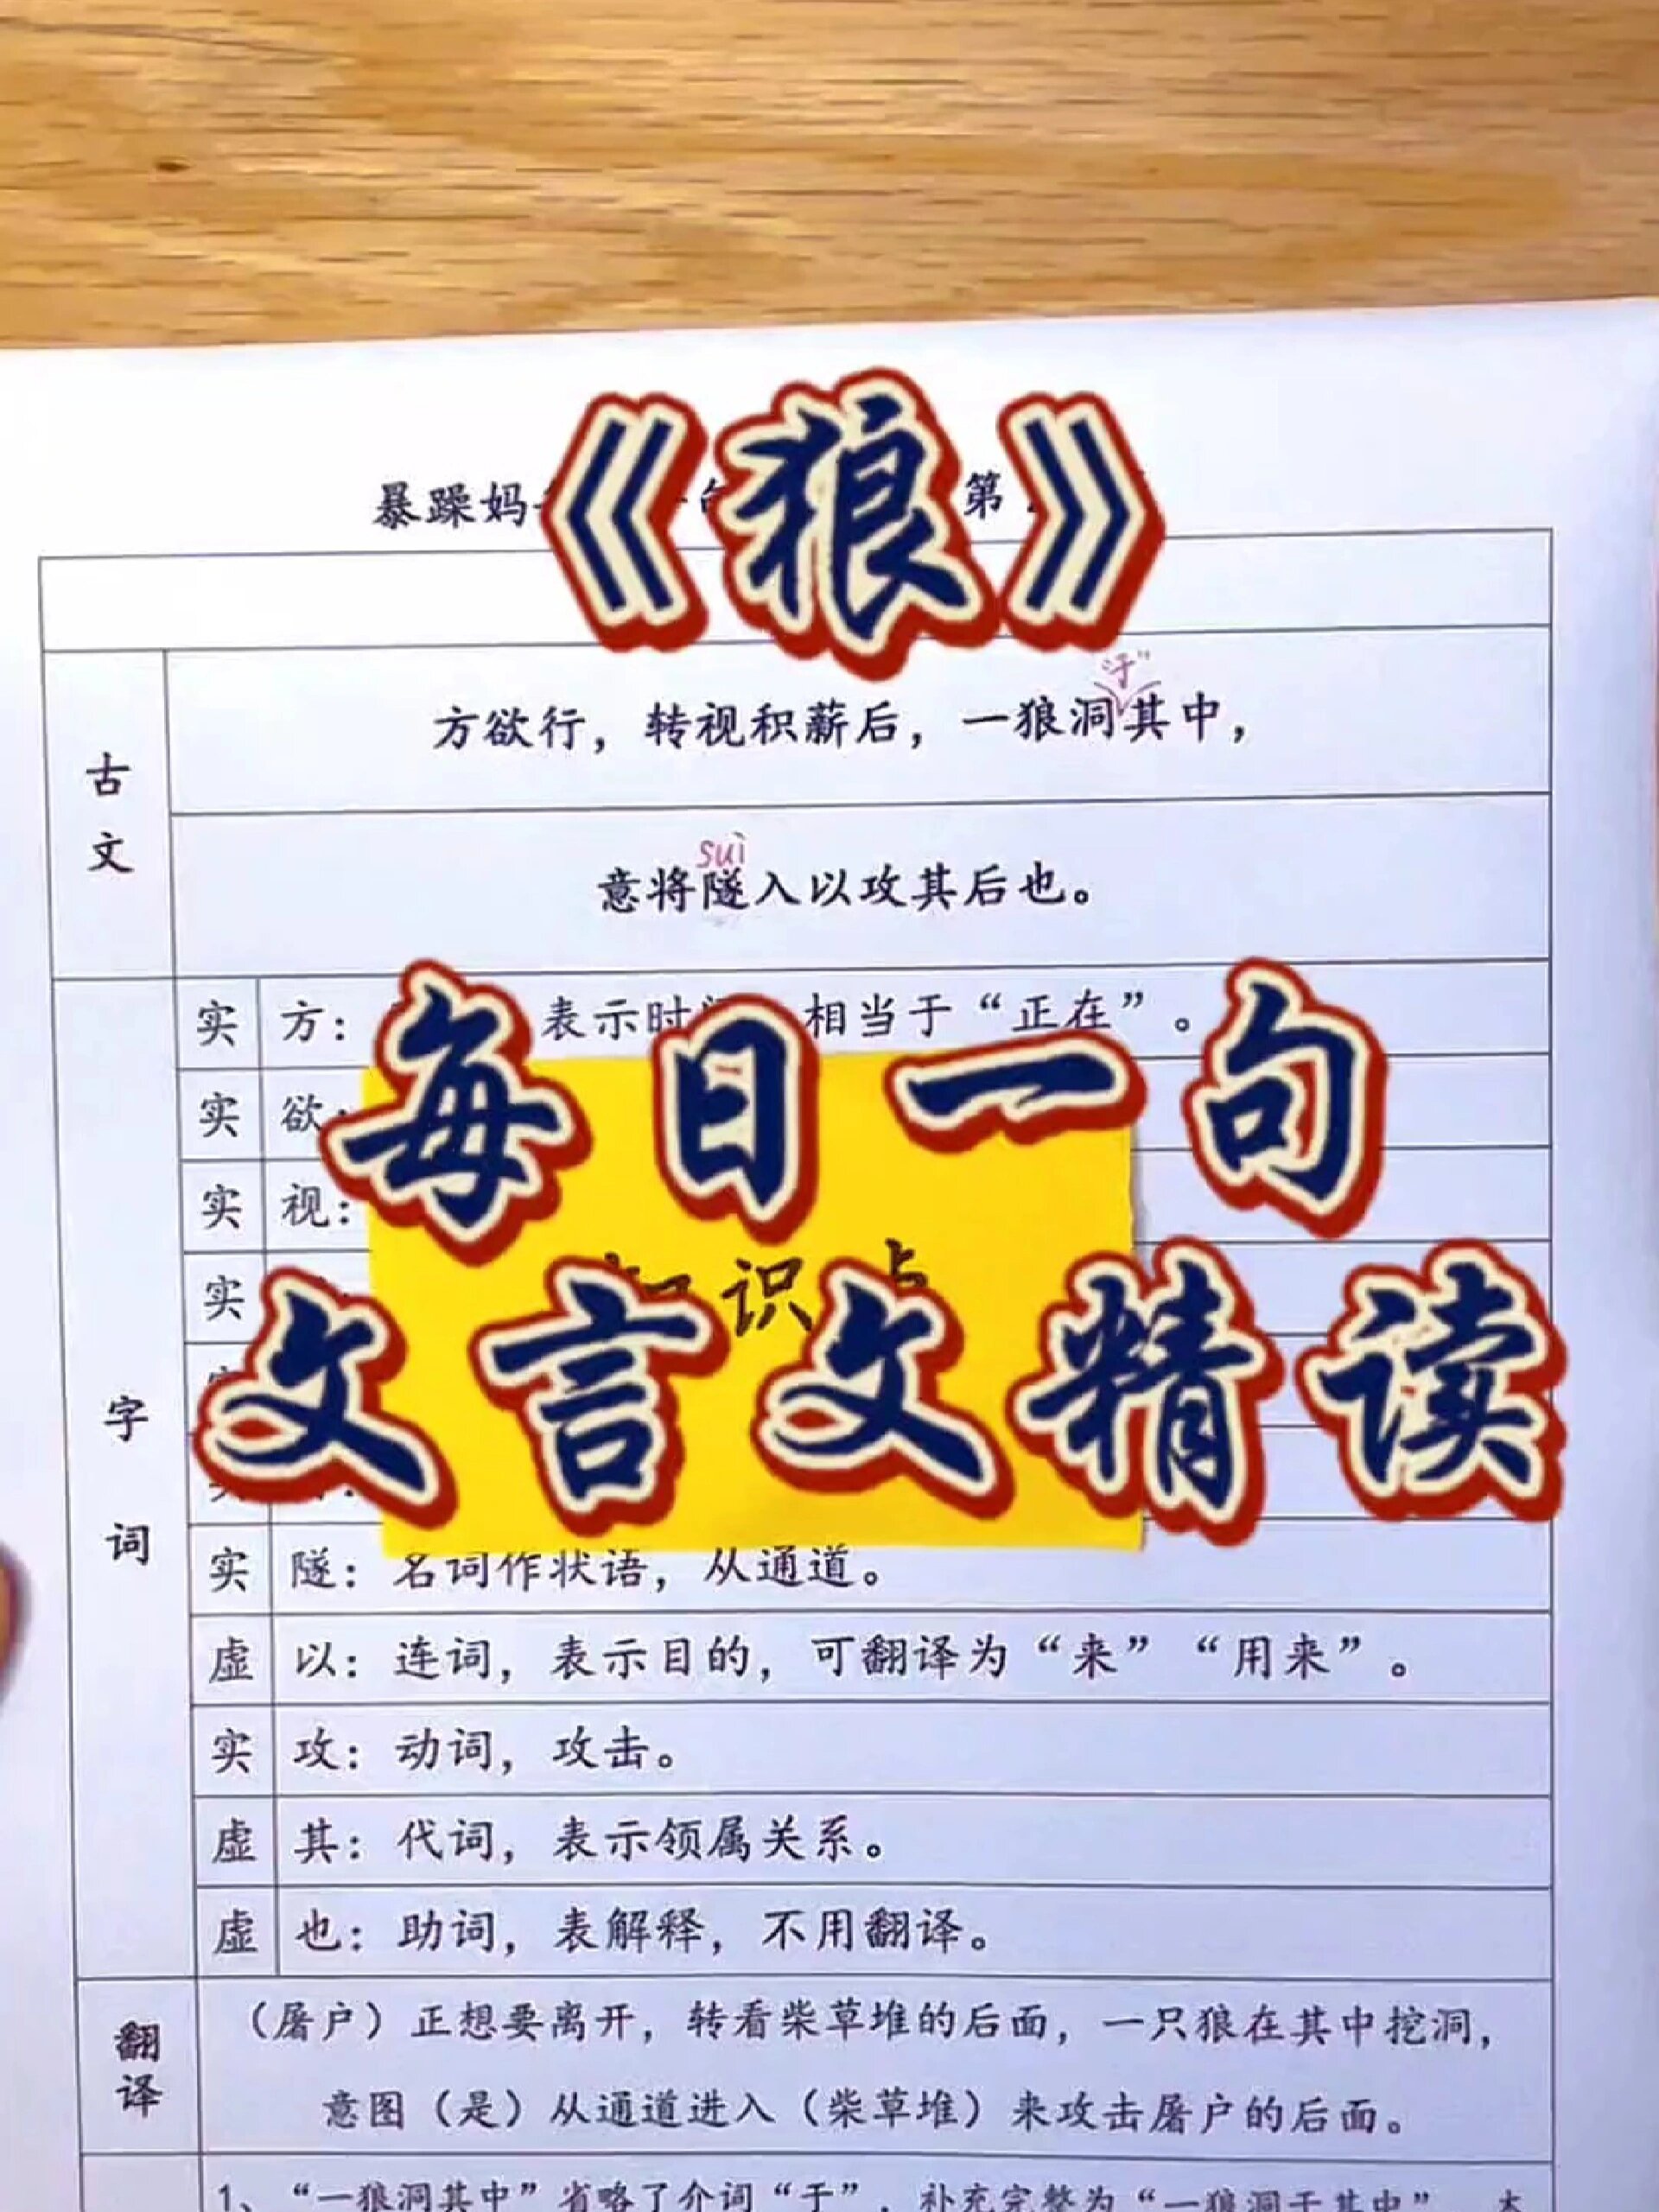 《狼》
暴躁妈
第
古文
方欲行，转视积薪后，一狼洞其中，
“于”
suì
意将隧入以攻其后也。
每日一句
文言文精读
字词
实 方： 表示时 相当于“正在”。
实 欲：
实 视：
实
识
实 隧：名词作状语，从通道。
虚 以：连词，表示目的，可翻译为“来”“用来”。
实 攻：动词，攻击。
虚 其：代词，表示领属关系。
虚 也：助词，表解释，不用翻译。
翻译
（屠户）正想要离开，转看柴草堆的后面，一只狼在其中挖洞，
意图（是）从通道进入（柴草堆）来攻击屠户的后面。
1、“一狼洞其中”省略了介词“于”，补充完整为“一狼洞于其中”，本